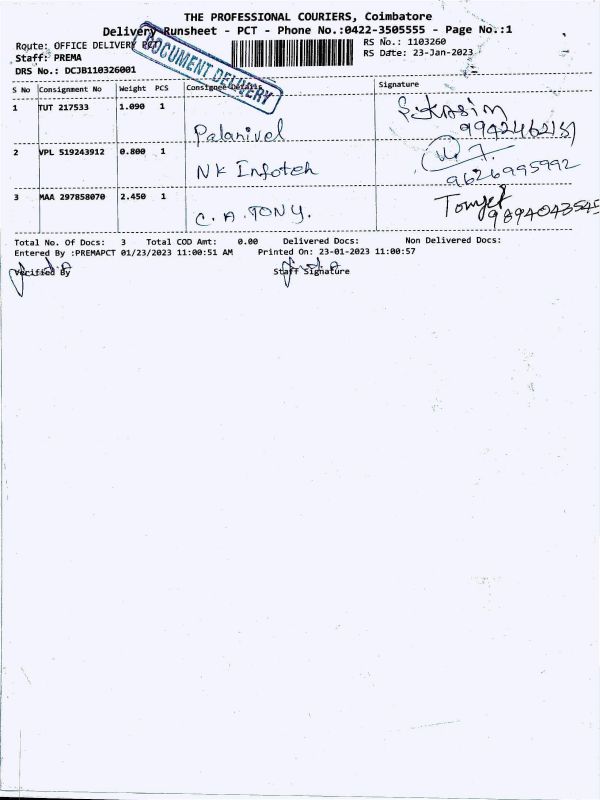 THE PROFESSIONAL COURIERS, Coimbatore
Delivery Runsheet - PCT - Phone No.:0422-3505555 - Page No.:1
Route: OFFICE DELIVERY PCT
RS No.: 1103260
Staff: PREMA
RS Date: 23-Jan-2023
DRS No.: DCJB110326001
DOCUMENT DELIVERY
S No Consignment No Weight PCS Consignee Details Signature
1 TUT 217533 1.090 1 Palanivel
2 VPL 519243912 0.800 1 NK Infoteh 9626995992
3 MAA 297858070 2.450 1 C. A. TONY. 9894043545
Total No. Of Docs: 3 Total COD Amt: 0.00 Delivered Docs: Non Delivered Docs:
Entered By :PREMAPCT 01/23/2023 11:00:51 AM Printed On: 23-01-2023 11:00:57
Verified By Staff Signature